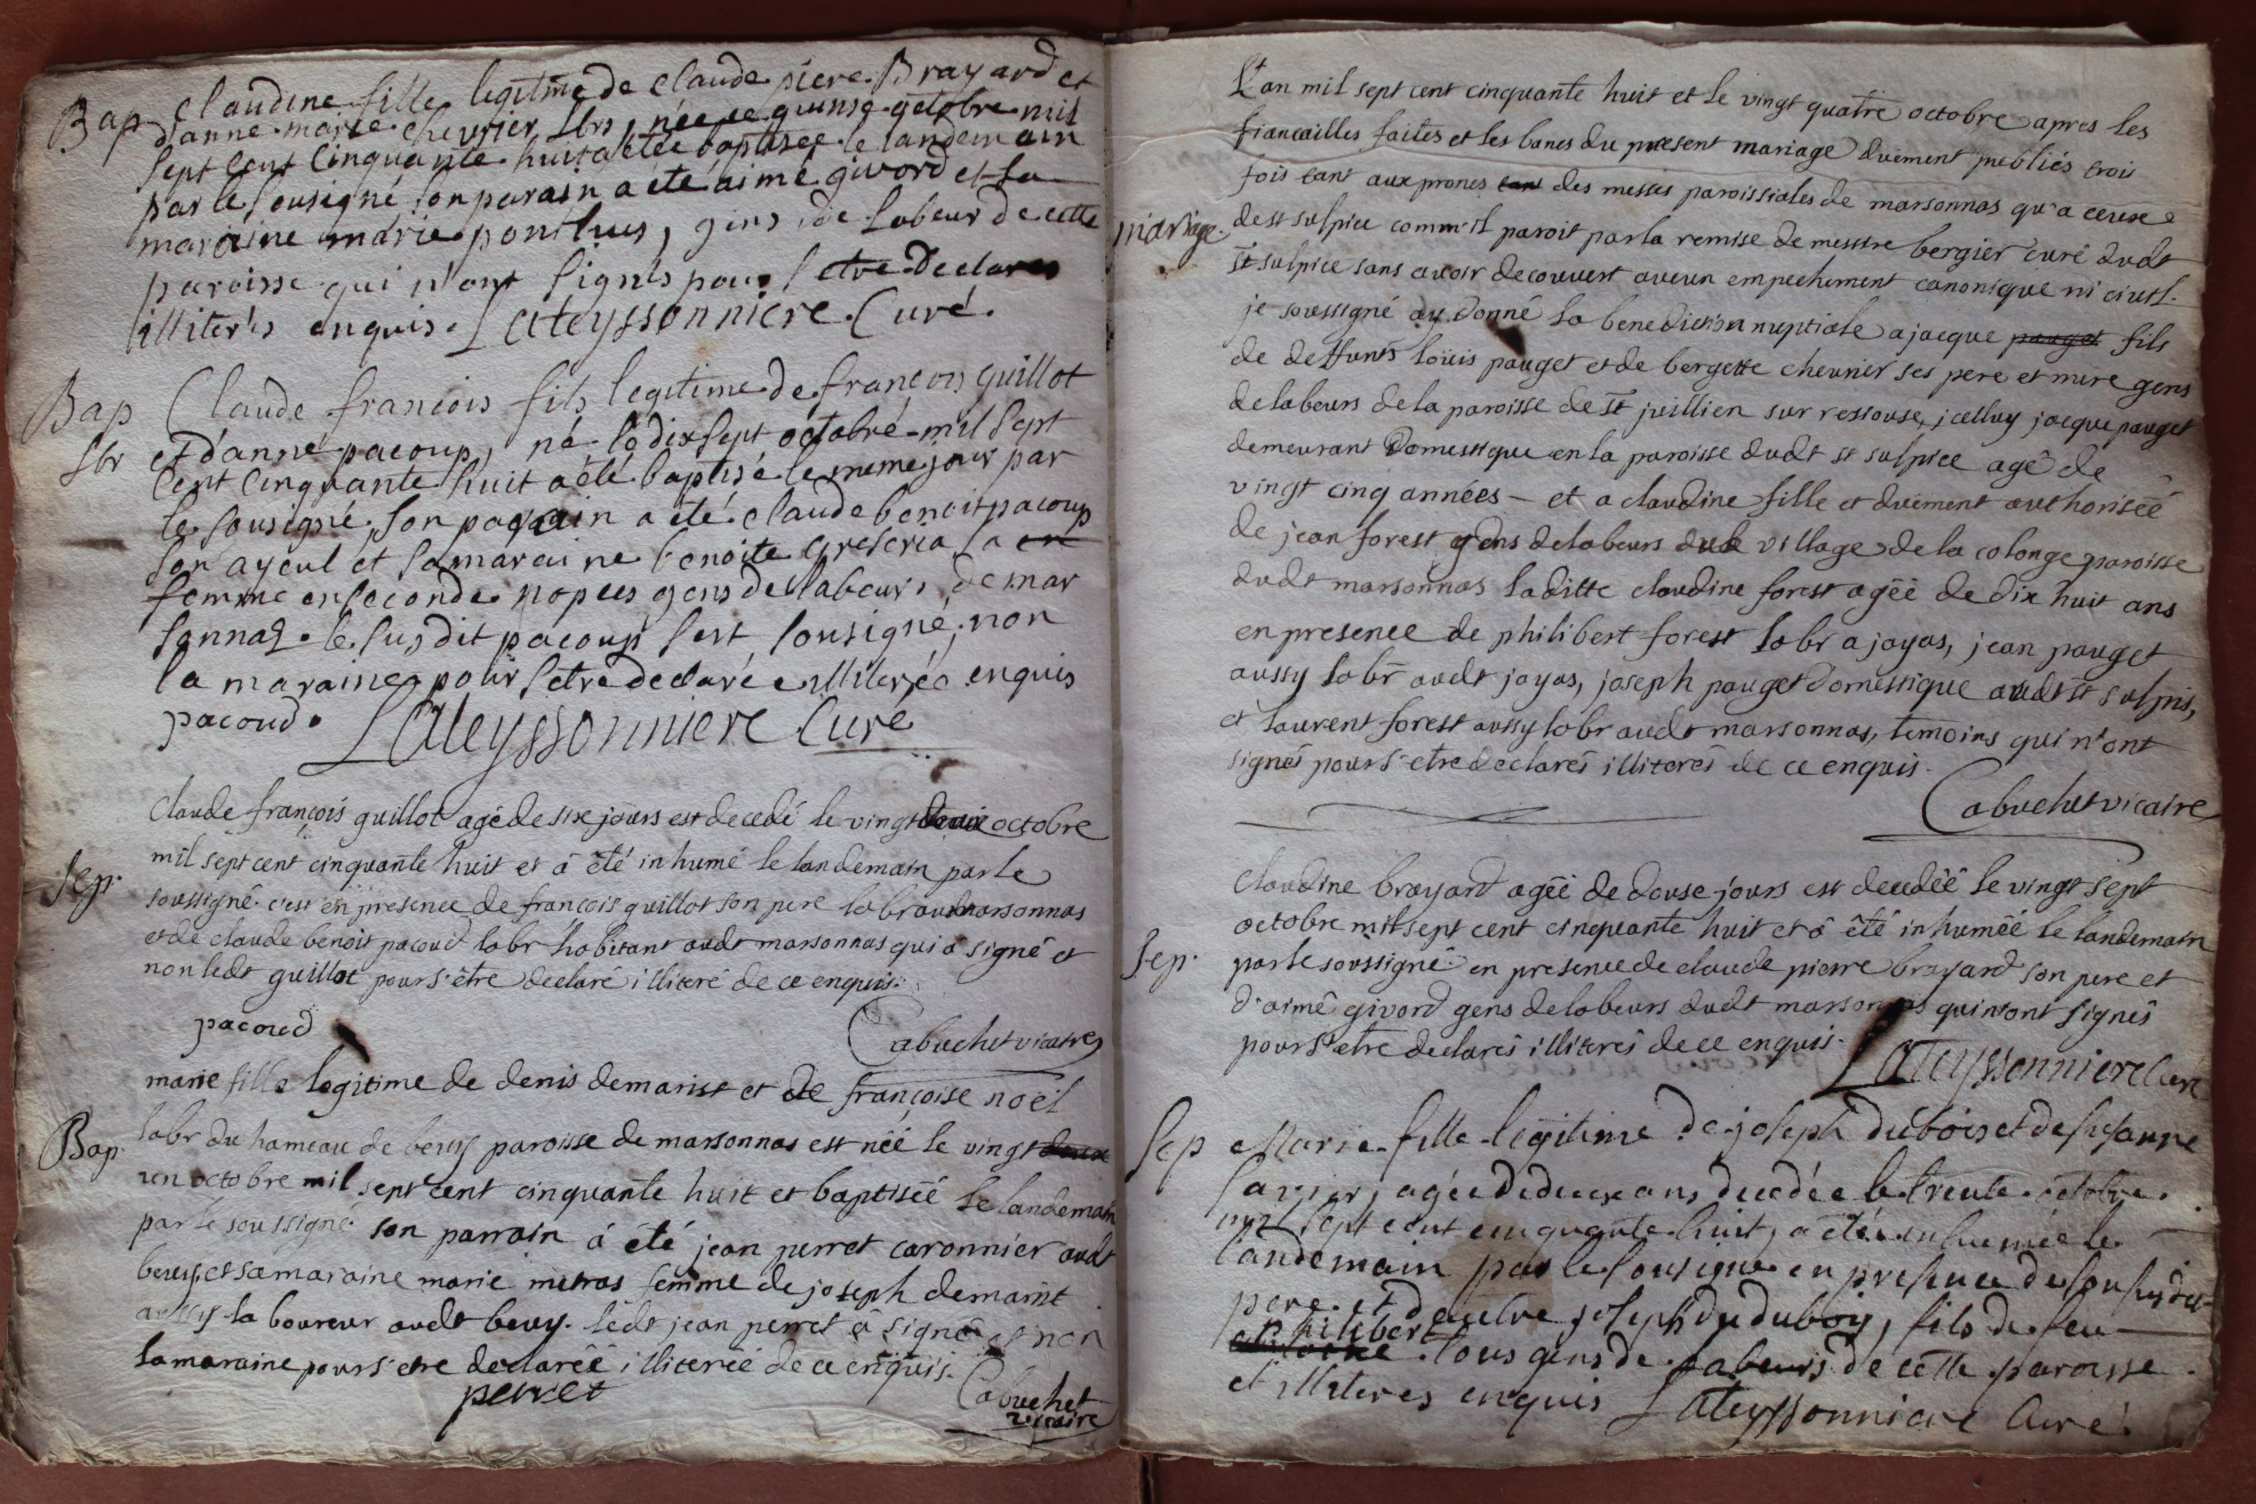 Bap Claudine fille legitime de claude piere Brayard et
d'anne marie chevrier lbrs, née le quinse octobre mil
sept cent cinquante huit a été baptisée le landemain
par le sousigné son parain a été aimé givord et sa
maraine marie ponthus, gens de labeur de cette
paroisse qui n'ont signés pour l etre declares
illiterés enquis. Lateyssonniere Curé.
Bap Claude francois fils legitime de françois guillot
lbr et d'anne pacoup, né le dix sept octobre mil sept
cent cinquante huit a été baptisé le meme jour par
le sousigné, son parain a été claude benoit pacoup
son ayeul et sa maraine benoite sa en
femme en seconde nopces gens de labeurs de mar
sonnas. le susdit pacoup s'est sousigné, non
la maraine pour s'etre declaré illiterée enquis
pacoud. Lateyssonniere Curé
Claude françois guillot agé de six jours est decedé le vingt deux octobre
mil sept cent cinquante huit et â êté inhumé le landemain par le
Sep. soussigné. c'est en presence de françois guillot son pere labr audt marsonnas
et de claude benoit pacoud labr habitant audt marsonnas qui â signé et
non ledt guillot pour s'être declaré illiteré de ce enquis.
pacoud Cabuchet vicaire
marie fille legitime de denis demarist et de françoise noël
Bap. labr du hameau de bevy paroisse de marsonnas est néé le vingt deux
un octobre mil sept cent cinquante huit et baptiséé le landemain
par le soussigné son parrain â êté jean perret caronnier audt
bevy, et sa maraine marie metras femme de joseph demarist
aussy laboureur audt bevy. ledt jean perret â signé et non
la maraine pour s'etre declaréé illiteréé de ce enquis.
perret Cabuchet
vicaire
L'an mil sept cent cinquante huit et le vingt quatre octobre apres les
fiancailles faites et les bancs du present mariage duement publiés trois
fois tant aux prones tant des messes paroissiales de marsonnas qu'a ceux
mariage. de st sulpice comm'il paroit par la remise de messire bergier curé dudt
st sulpice sans avoir decouvert aucun empechement canonique ni civil.
je soussigné ay donné la benediction nuptiale a jacque pauget fils
de deffunts loüis pauget et de bergette chevrier ses pere et mere gens
de labeurs de la paroisse de st juillien sur ressouse, icelluy jacque pauget
demeurant Domestique en la paroisse dudt st sulpice agé de
vingt cinq années – et a claudine fille et duement authoriséé
de jean forest gens de labeurs du village de la colonge paroisse
dudt marsonnas laditte claudine forest agéé de dix huit ans
en presence de philibert forest labr a jayas, jean pauget
aussy labr audt jayas, joseph pauget domestique audt st sulpis,
et laurent forest aussy labr audt marsonnas, temoins qui n'ont
signés pour s'etre declarés illiterés de ce enquis.
Cabuchet vicaire
Claudine brayard agéé de douse jours est decedéé le vingt sept
octobre mil sept cent cinquante huit et â êté inhuméé le landemain
Sep. par le soussigné. en presence de claude pierre brayard son pere et
d'aimé givord gens de labeurs dudt marsonnas qui n'ont signés
pour s'etre declarés illiterés de ce enquis.
Lateyssonniere Curé
Sep Marie fille legitime de joseph dubois et de susanne
agée de deux ans, decedée le trente octobre
mil sept cent cinquante huit, a été inhumée le
landemain par le sousigné en presence de son susdit
pere et d'autre joseph du dubois, fils de feu
philibert
tous gens de labeurs de cette paroisse
et illiterés enquis Lateyssonniere Curé.